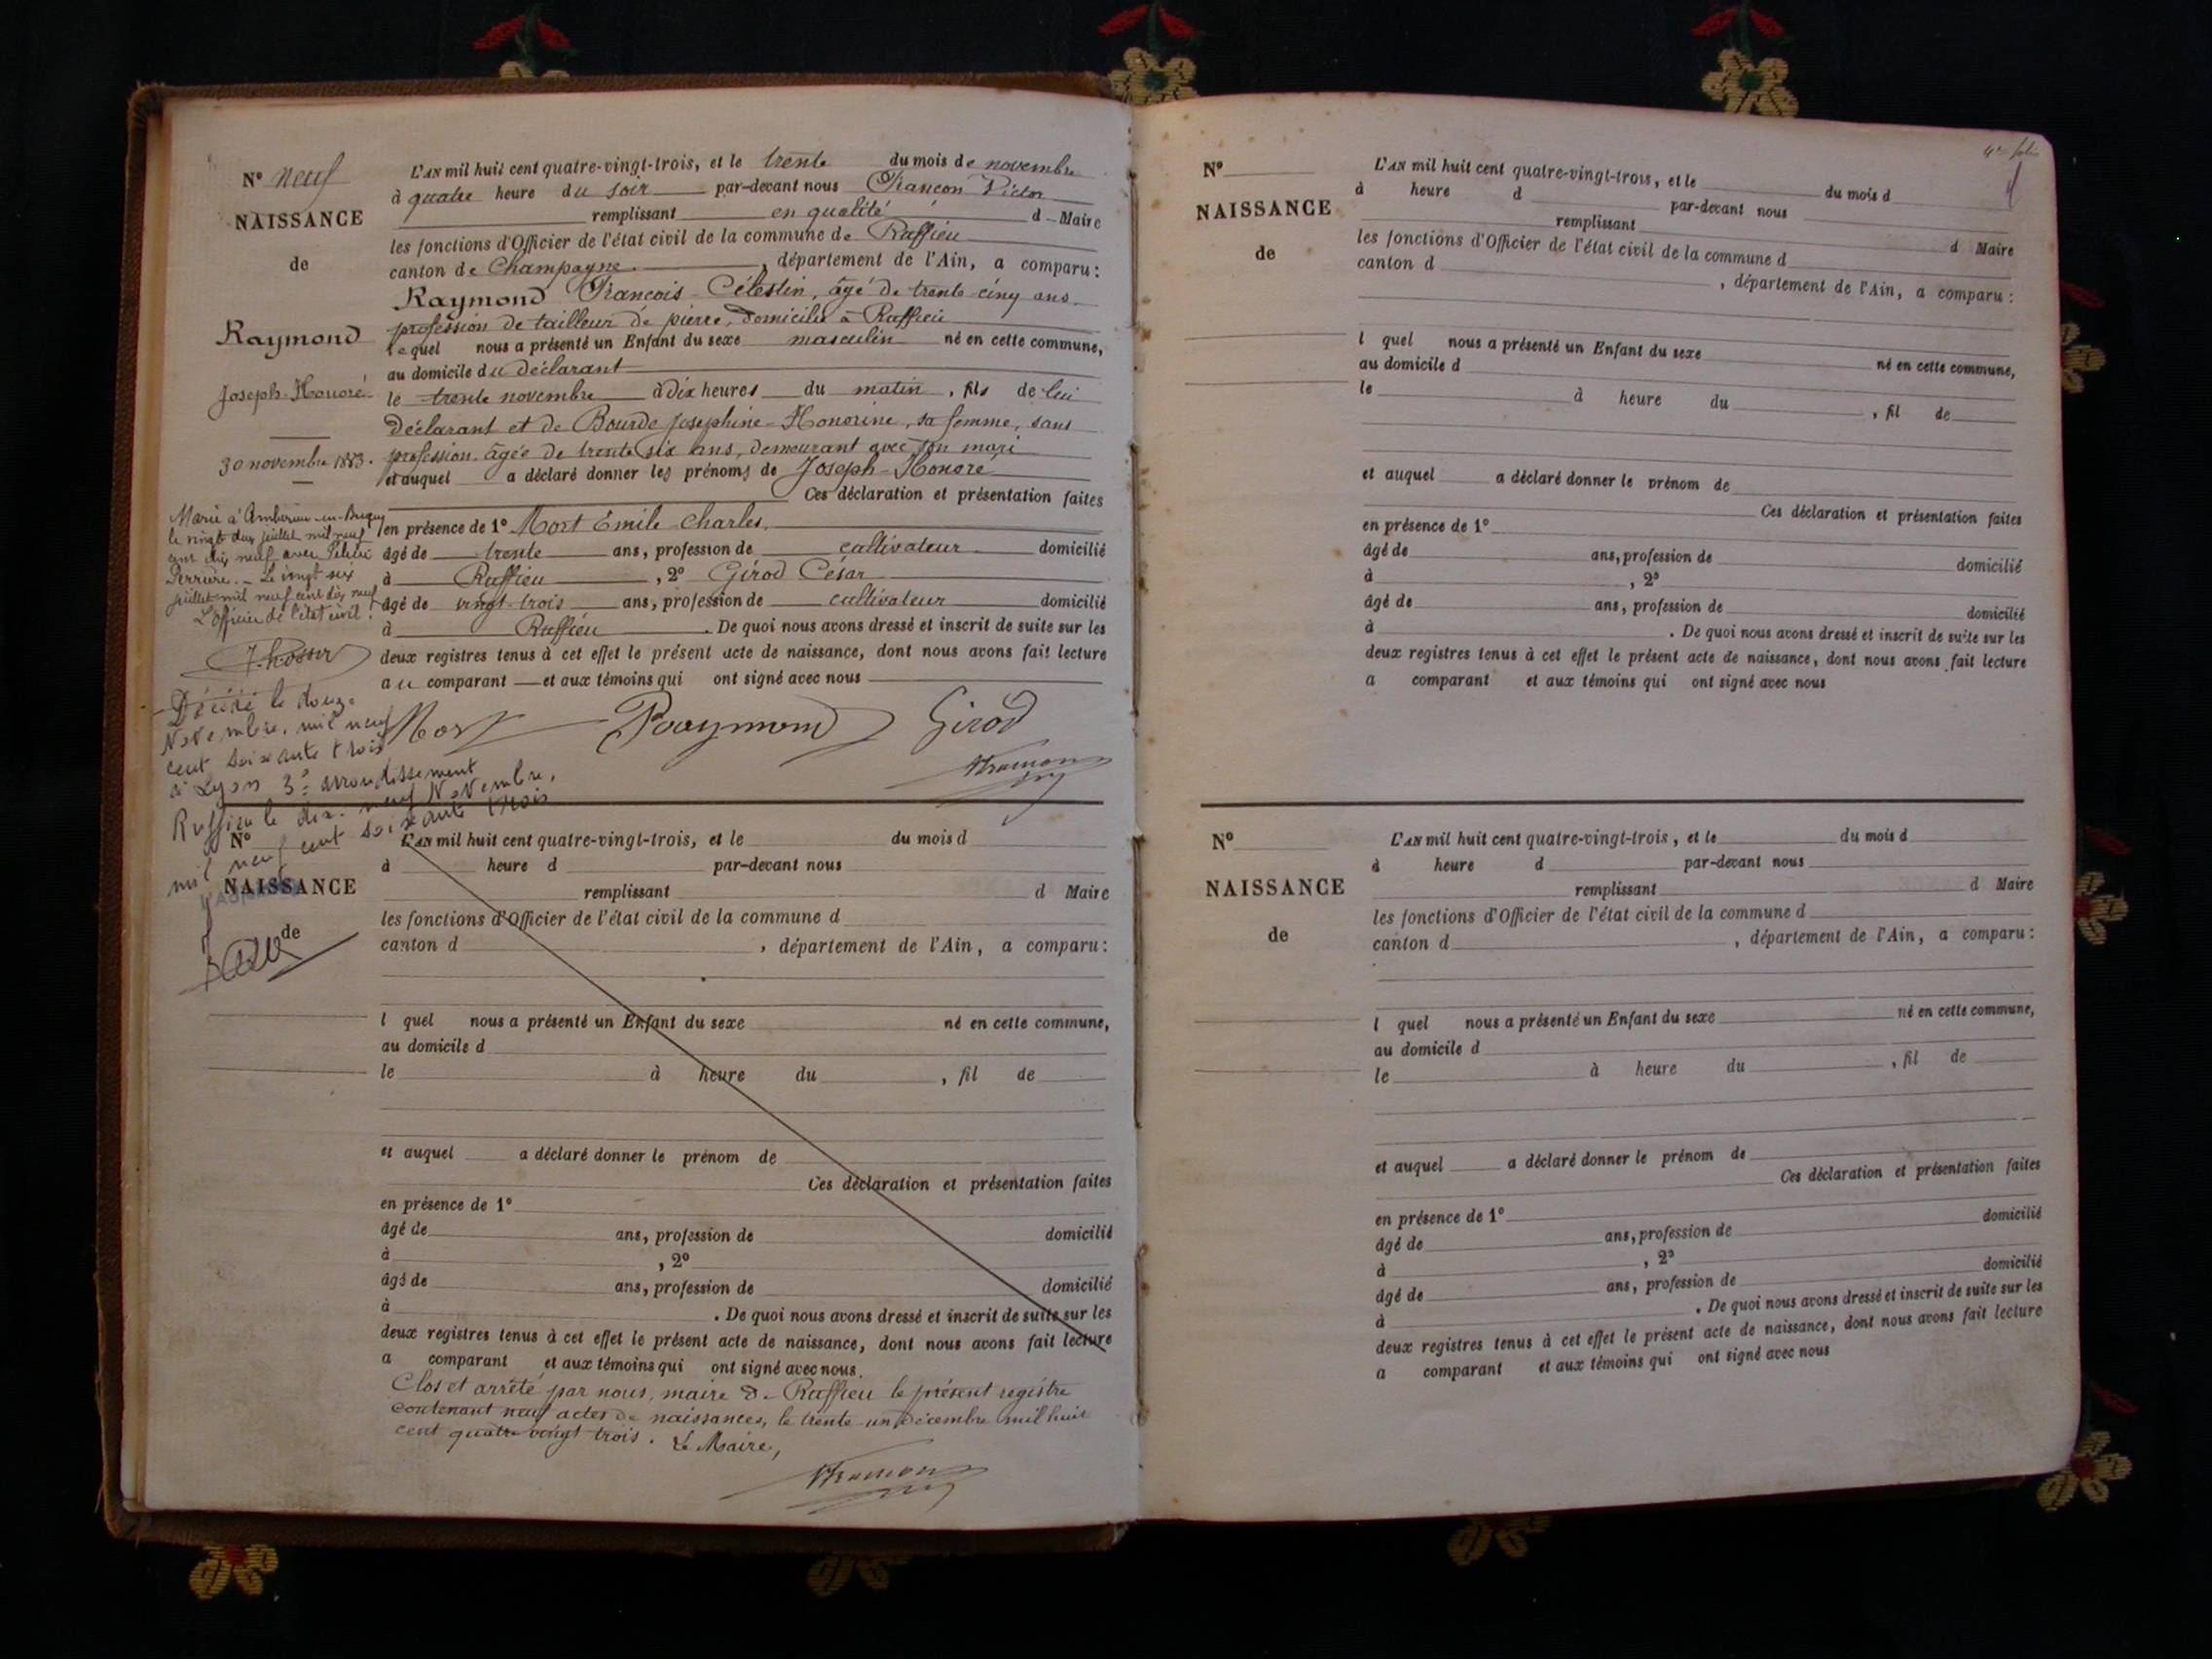 Nº neuf
NAISSANCE
de
Raymond
Joseph-Honoré
30 novembre 1883.
L'AN mil huit cent quatre-vingt-trois, et le trente du mois de novembre
à quatre heure du soir par-devant nous Françon Victor
remplissant en qualité d Maire
les fonctions d'Officier de l'état civil de la commune de Ruffieu
canton de Champagne, département de l'Ain, a comparu:
Raymond François-Célestin, âgé de trente-cinq ans
profession de tailleur de pierre, domicilié à Ruffieu
lequel nous a présenté un Enfant du sexe masculin né en cette commune,
au domicile du déclarant
le trente novembre à dix heures du matin, fils de lui
déclarant et de Bourde Joséphine-Honorine, sa femme, sans
profession, âgée de trente six ans, demeurant avec son mari
et auquel a déclaré donner les prénoms de Joseph-Honoré
Ces déclaration et présentation faites
en présence de 1º Mort Emile-Charles,
âgé de trente ans, profession de cultivateur domicilié
à Ruffieu, 2º Girod César
âgé de vingt-trois ans, profession de cultivateur domicilié
à Ruffieu. De quoi nous avons dressé et inscrit de suite sur les
deux registres tenus à cet effet le présent acte de naissance, dont nous avons fait lecture
au comparant et aux témoins qui ont signé avec nous
Mort Raymond Girod
Françon
Marié à Ambérieu-en-Bugey
le vingt deux juillet mil neuf
cent dix neuf avec
Perrine. - Le vingt six
juillet mil neuf cent dix neuf
L'officier de l'état civil.
Décédé le douze
Novembre, mil neuf
cent soixante trois
à Lyon 3e arrondissement
Ruffieu le dix-neuf Novembre,
mil neuf cent soixante trois
Nº
NAISSANCE
de
L'AN mil huit cent quatre-vingt-trois, et le du mois d
à heure d par-devant nous
remplissant d Maire
les fonctions d'Officier de l'état civil de la commune d
canton d , département de l'Ain, a comparu:
l quel nous a présenté un Enfant du sexe né en cette commune,
au domicile d
le à heure du , fil de
et auquel a déclaré donner le prénom de
Ces déclaration et présentation faites
en présence de 1º
âgé de ans, profession de domicilié
à , 2º
âgé de ans, profession de domicilié
à . De quoi nous avons dressé et inscrit de suite sur les
deux registres tenus à cet effet le présent acte de naissance, dont nous avons fait lecture
a comparant et aux témoins qui ont signé avec nous.
Clos et arrêté par nous, maire de Ruffieu le présent registre
contenant neuf actes de naissances, le trente un décembre mil huit
cent quatre-vingt trois. Le Maire,
Françon
Nº
NAISSANCE
de
L'AN mil huit cent quatre-vingt-trois, et le du mois d
à heure d par-devant nous
remplissant d Maire
les fonctions d'Officier de l'état civil de la commune d
canton d , département de l'Ain, a comparu:
l quel nous a présenté un Enfant du sexe né en cette commune,
au domicile d
le à heure du , fil de
et auquel a déclaré donner le prénom de
Ces déclaration et présentation faites
en présence de 1º
âgé de ans, profession de domicilié
à , 2º
âgé de ans, profession de domicilié
à . De quoi nous avons dressé et inscrit de suite sur les
deux registres tenus à cet effet le présent acte de naissance, dont nous avons fait lecture
a comparant et aux témoins qui ont signé avec nous
Nº
NAISSANCE
de
L'AN mil huit cent quatre-vingt-trois, et le du mois d
à heure d par-devant nous
remplissant d Maire
les fonctions d'Officier de l'état civil de la commune d
canton d , département de l'Ain, a comparu:
l quel nous a présenté un Enfant du sexe né en cette commune,
au domicile d
le à heure du , fil de
et auquel a déclaré donner le prénom de
Ces déclaration et présentation faites
en présence de 1º
âgé de ans, profession de domicilié
à , 2º
âgé de ans, profession de domicilié
à . De quoi nous avons dressé et inscrit de suite sur les
deux registres tenus à cet effet le présent acte de naissance, dont nous avons fait lecture
a comparant et aux témoins qui ont signé avec nous